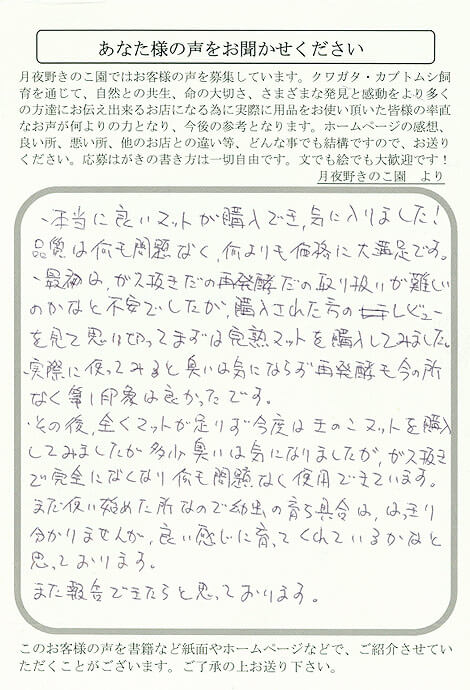 あなた様の声をお聞かせください
月夜野きのこ園ではお客様の声を募集しています。クワガタ・カブトムシ飼
育を通じて、自然との共生、命の大切さ、さまざまな発見と感動をより多く
の方達にお伝え出来るお店になる為に実際に用品をお使い頂いた皆様の率直
なお声が何よりの力となり、今後の参考となります。ホームページの感想、
良い所、悪い所、他のお店との違い等、どんな事でも結構ですので、お送り
ください。応募はがきの書き方は一切自由です。文でも絵でも大歓迎です！
月夜野きのこ園　より
・本当に良いマットが購入でき,気に入りました！
品質は何も問題なく,何よりも価格に大満足です。
・最初は,ガス抜きだの再発酵だの取り扱いが難しい
のかなと不安でしたが,購入された方のレビュー
を見て思い切ってまずは完熟マットを購入してみました。
・実際に使ってみると臭いは気にならず再発酵も今の所
なく第1印象は良かったです。
・その後,全くマットが足りず今度はきのこマットを購入
してみましたが多少臭いは気になりましたが,ガス抜き
で完全になくなり何も問題なく使用できています。
まだ使い始めた所なので幼虫の育ち具合は,はっきり
分かりませんが,良い感じに育ってくれているかなと
思っております。
また報告できたらと思っております。
このお客様の声を書籍など紙面やホームページなどで、ご紹介させてい
ただくことがございます。ご了承の上お送り下さい。